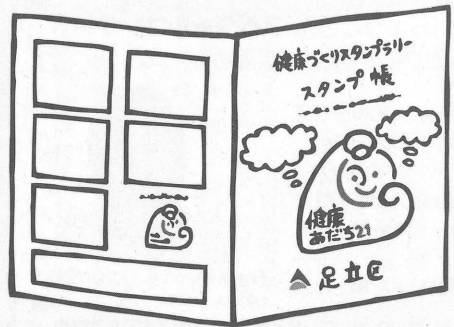 健康づくりスタンプラリー
スタンプ帳
健康
あだち21
足立区